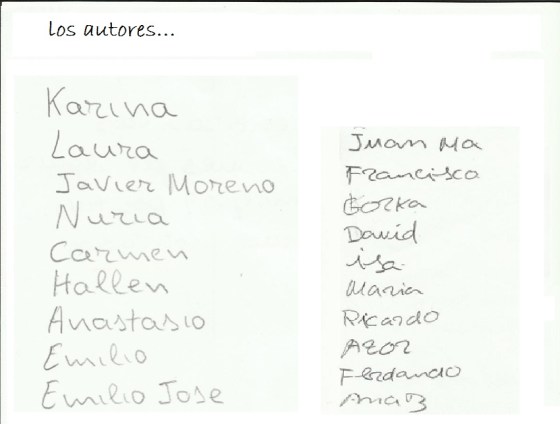 los autores...
Karina
Laura
Javier Moreno
Nuria
Carmen
Hallen
Anastasio
Emilio
Emilio Jose
Juan Ma
Francisco
Gorka
David
isa
Maria
Ricardo
Azor
Ferdando